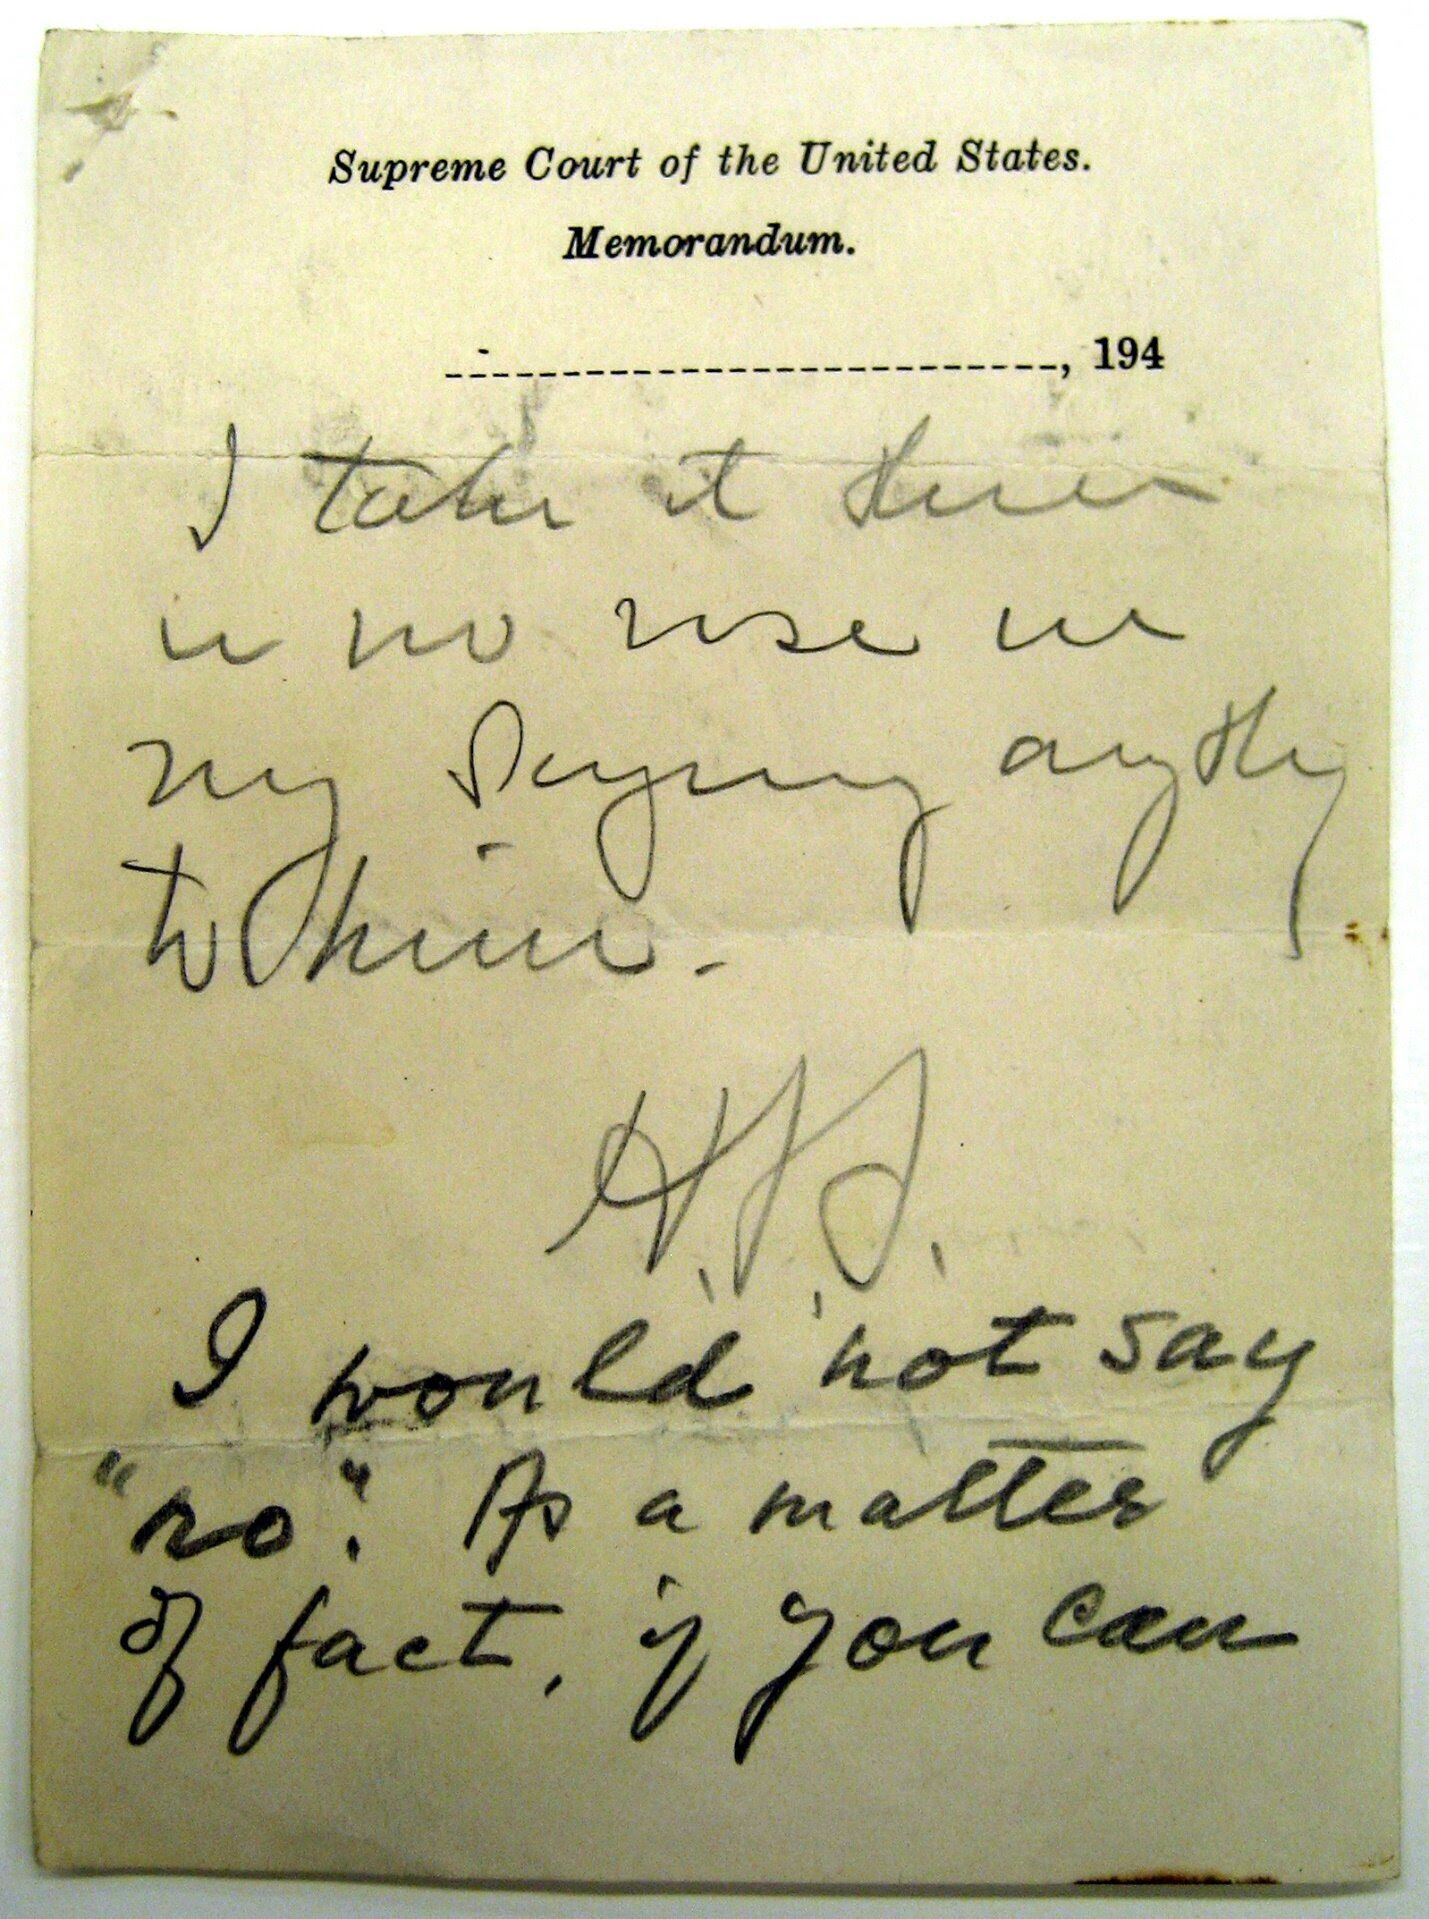 Supreme Court of the United States.
Memorandum.
, 194
I take it there
is no use in
my saying anything
to him.
H.F.S.
I would not say
"no". As a matter
of fact, if you can